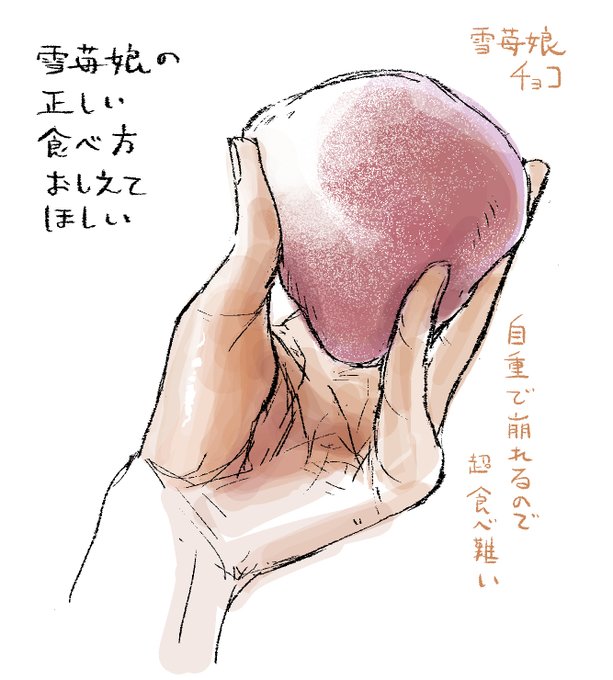 雪苺娘の
正しい
食べ方
おしえて
ほしい
雪苺娘
チョコ
自重で崩れるので
超食べ難い